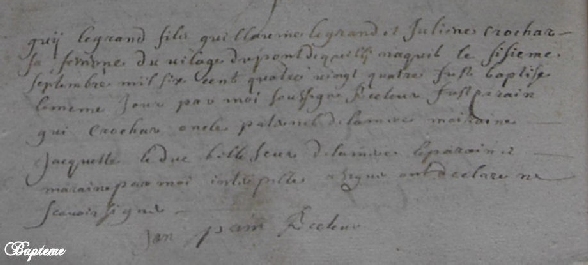 guy legrand fils guillaume legrand et Juliene Crochar
sa femme du vilage du pont naquit le sisieme
septembre mil six cent quatre vingt quatre fust baptise
le meme Jour par moi soussigne Recteur fust parain
gui Crochar oncle paternel de la mere maraine
Jacquette le duc belle seur de la mere le parain et
maraine par moi interpelles signe ont declare ne
scavoir signe
Jan Recteur
Bapteme